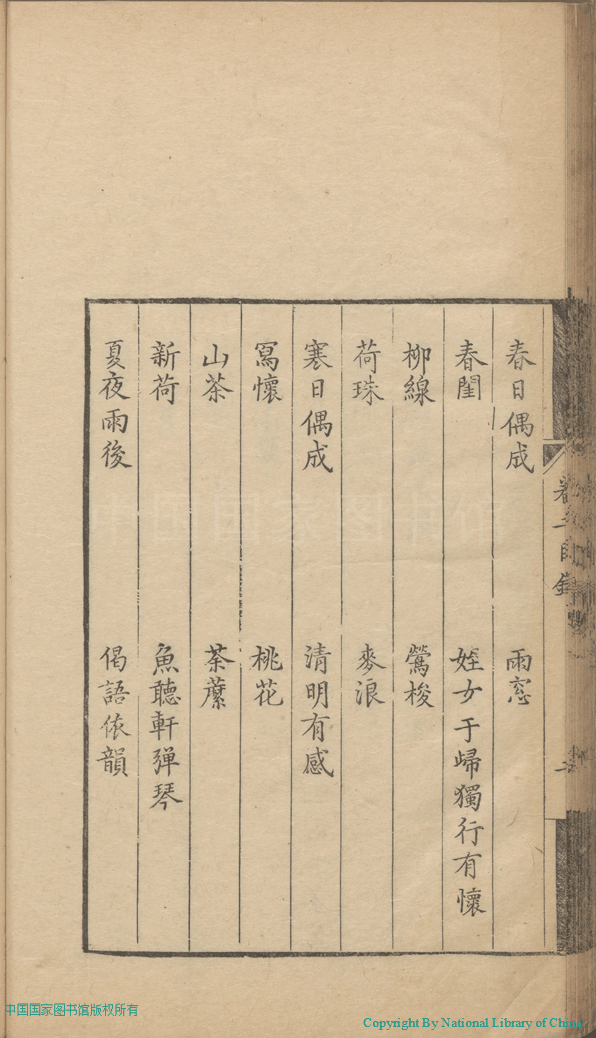 春日偶成 雨窓
春閨 姪女于歸獨行有懷
柳線 鶯梭
荷珠 麥浪
寒日偶成 清明有感
寫懷 桃花
山茶 荼蘼
新荷 魚聽軒弾琴
夏夜雨後 偈語依韻
中国国家图书馆
中国国家图书馆版权所有
Copyright By National Library of China